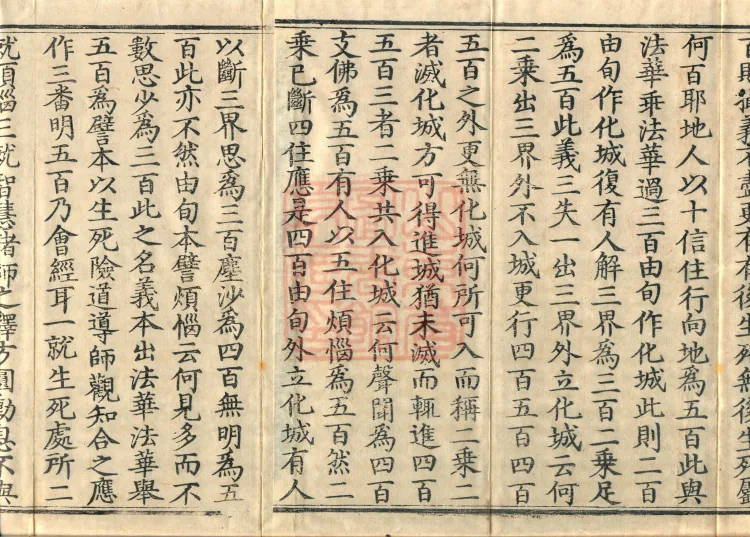 義不盡更有有後生死無後生死
何百耶地人以十信住行向地爲五百此與
法華乖法華過三百由旬作化城此則二百
由旬作化城復有人解三界爲三百二乘足
爲五百此義三失一出三界外立化城云何
二乘出三界外不入城更行四百五百四百
五百之外更無化城何所可入而稱二乘二
者滅化城方可得進城猶未滅而輒進四百
五百三者一乘共入化城云何聲聞爲四百
支佛爲五百有人以五住煩惱爲五百然二
乘已斷四住應是四百由旬外立化城有人
以斷三界思爲三百塵沙爲四百無明爲五
百此亦不然由旬本譬煩惱云何見多而不
數思少爲三百此之名義本出法華法華舉
五百爲譬本以生死險道導師觀知合之應
作三番明五百乃會經耳一就生死處所二
就煩惱三就智慧諸師之釋方圓動息不與